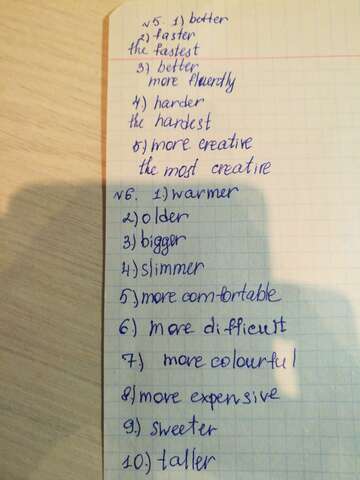 №5. 1) better
2) faster
the fastest
3) better
more fluently
4) harder
the hardest
5) more creative
the most creative
№6. 1) warmer
2) older
3) bigger
4) slimmer
5) more comfortable
6) more difficult
7) more colourful
8) more expensive
9.) sweeter
10.) taller